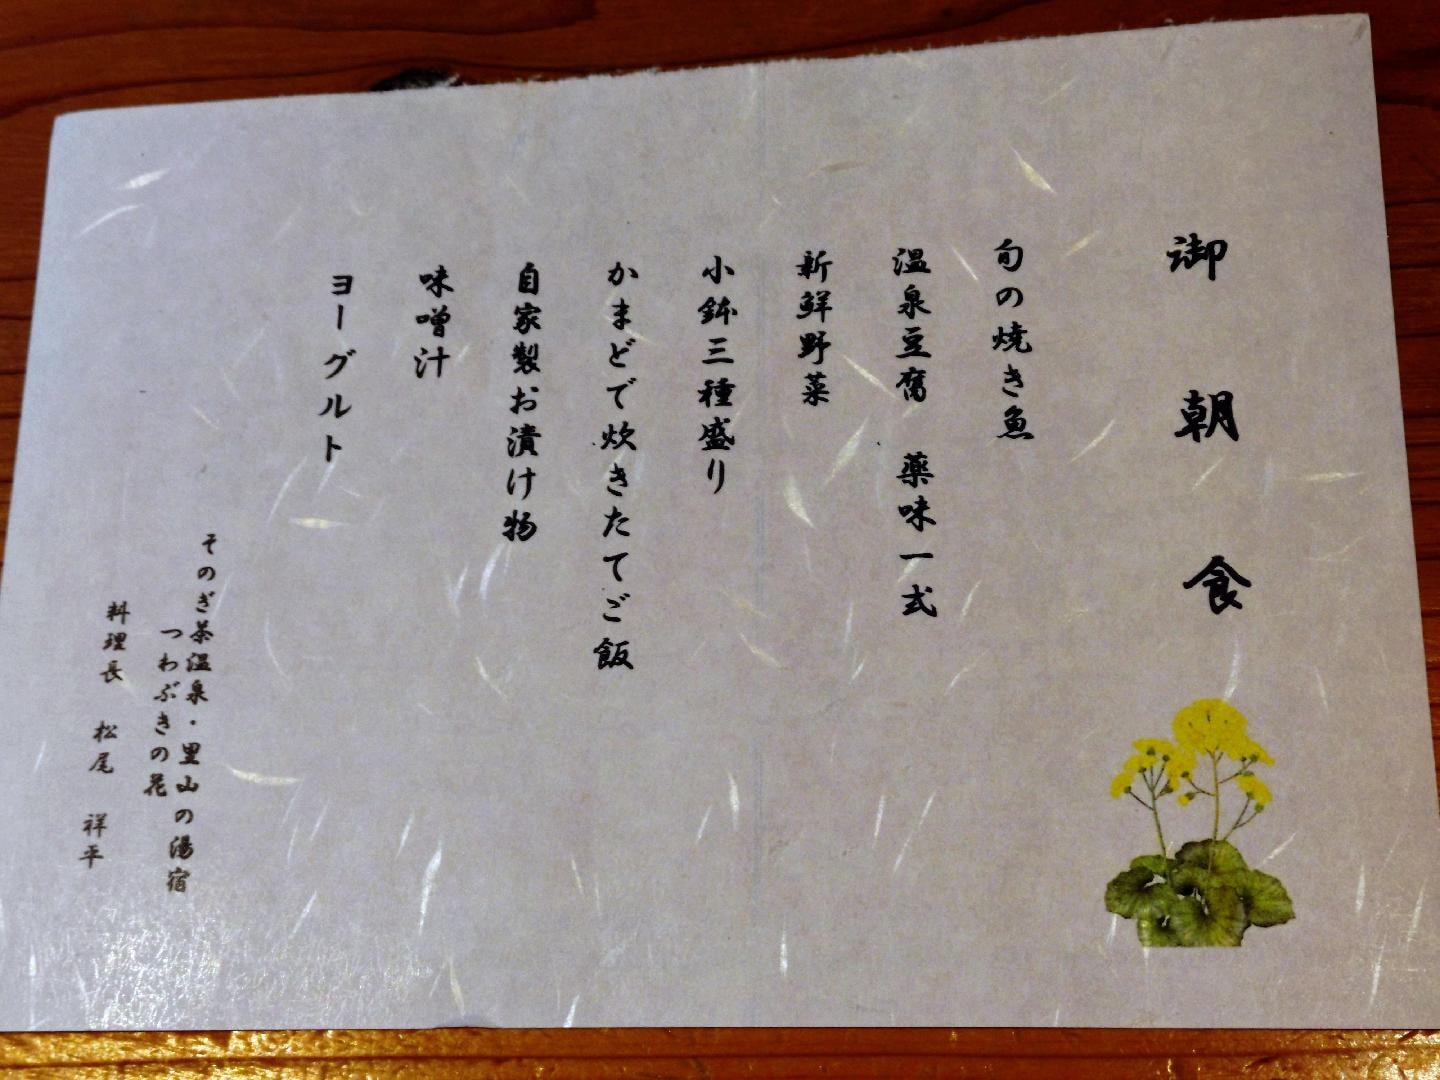 御朝食
旬の焼き魚
温泉豆腐　薬味一式
新鮮野菜
小鉢三種盛り
かまどで炊きたてご飯
自家製お漬け物
味噌汁
ヨーグルト
そのぎ茶温泉・里山の湯宿
つわぶきの花
料理長　松尾　祥平